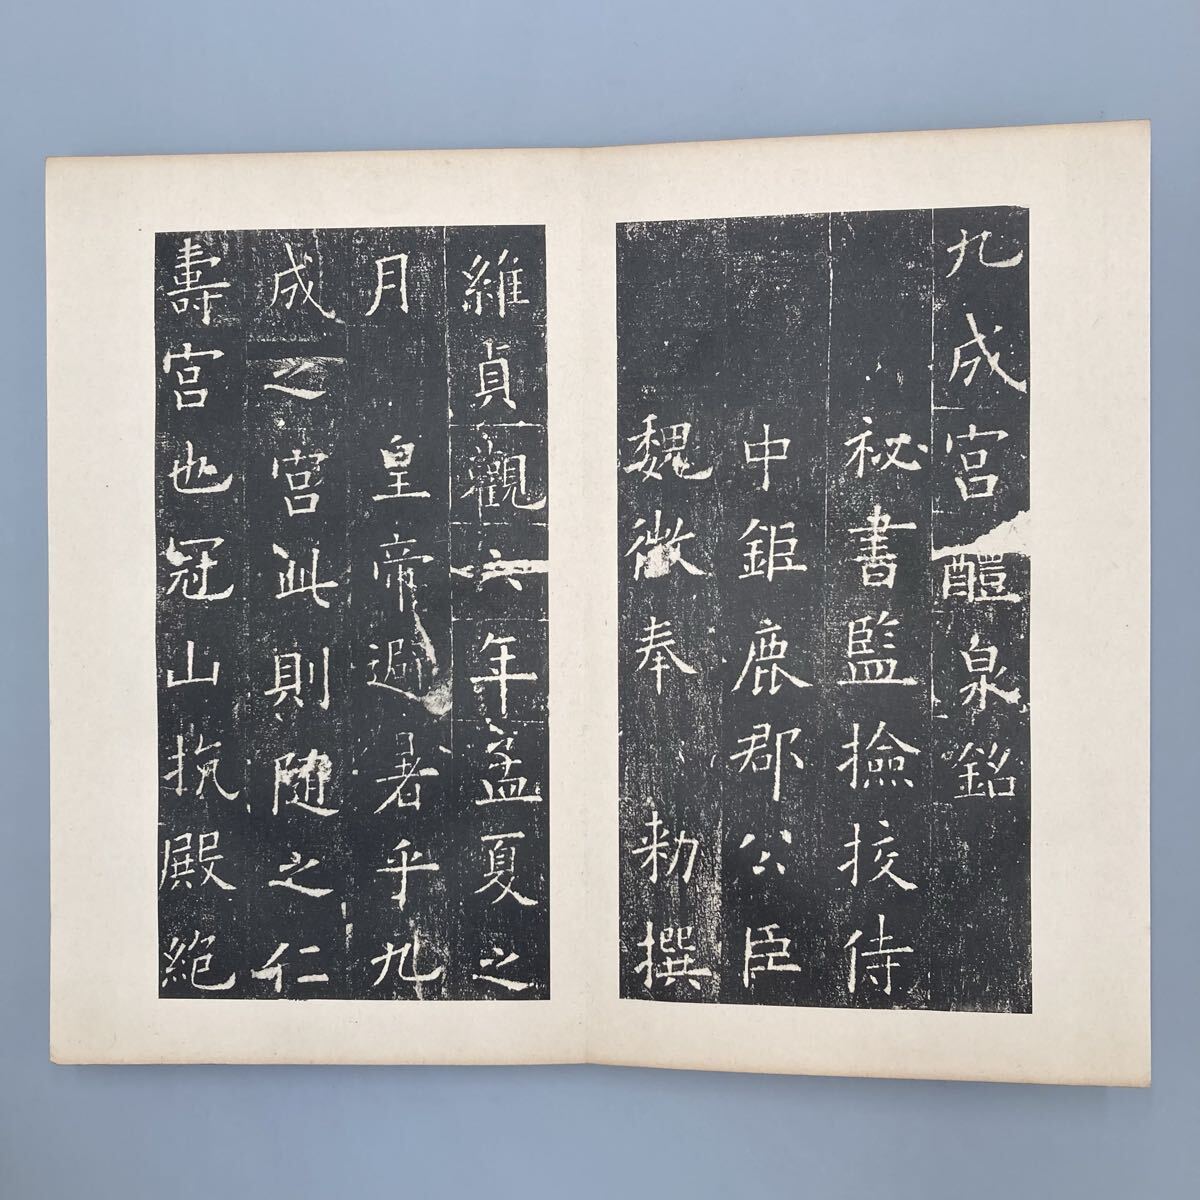 九成宮醴泉銘
秘書監撿挍侍
中鉅鹿郡公臣
魏徵奉勑撰
維貞觀六年孟夏之
月皇帝避暑乎九
成之宮此則随之仁
壽宮也冠山抗殿絶